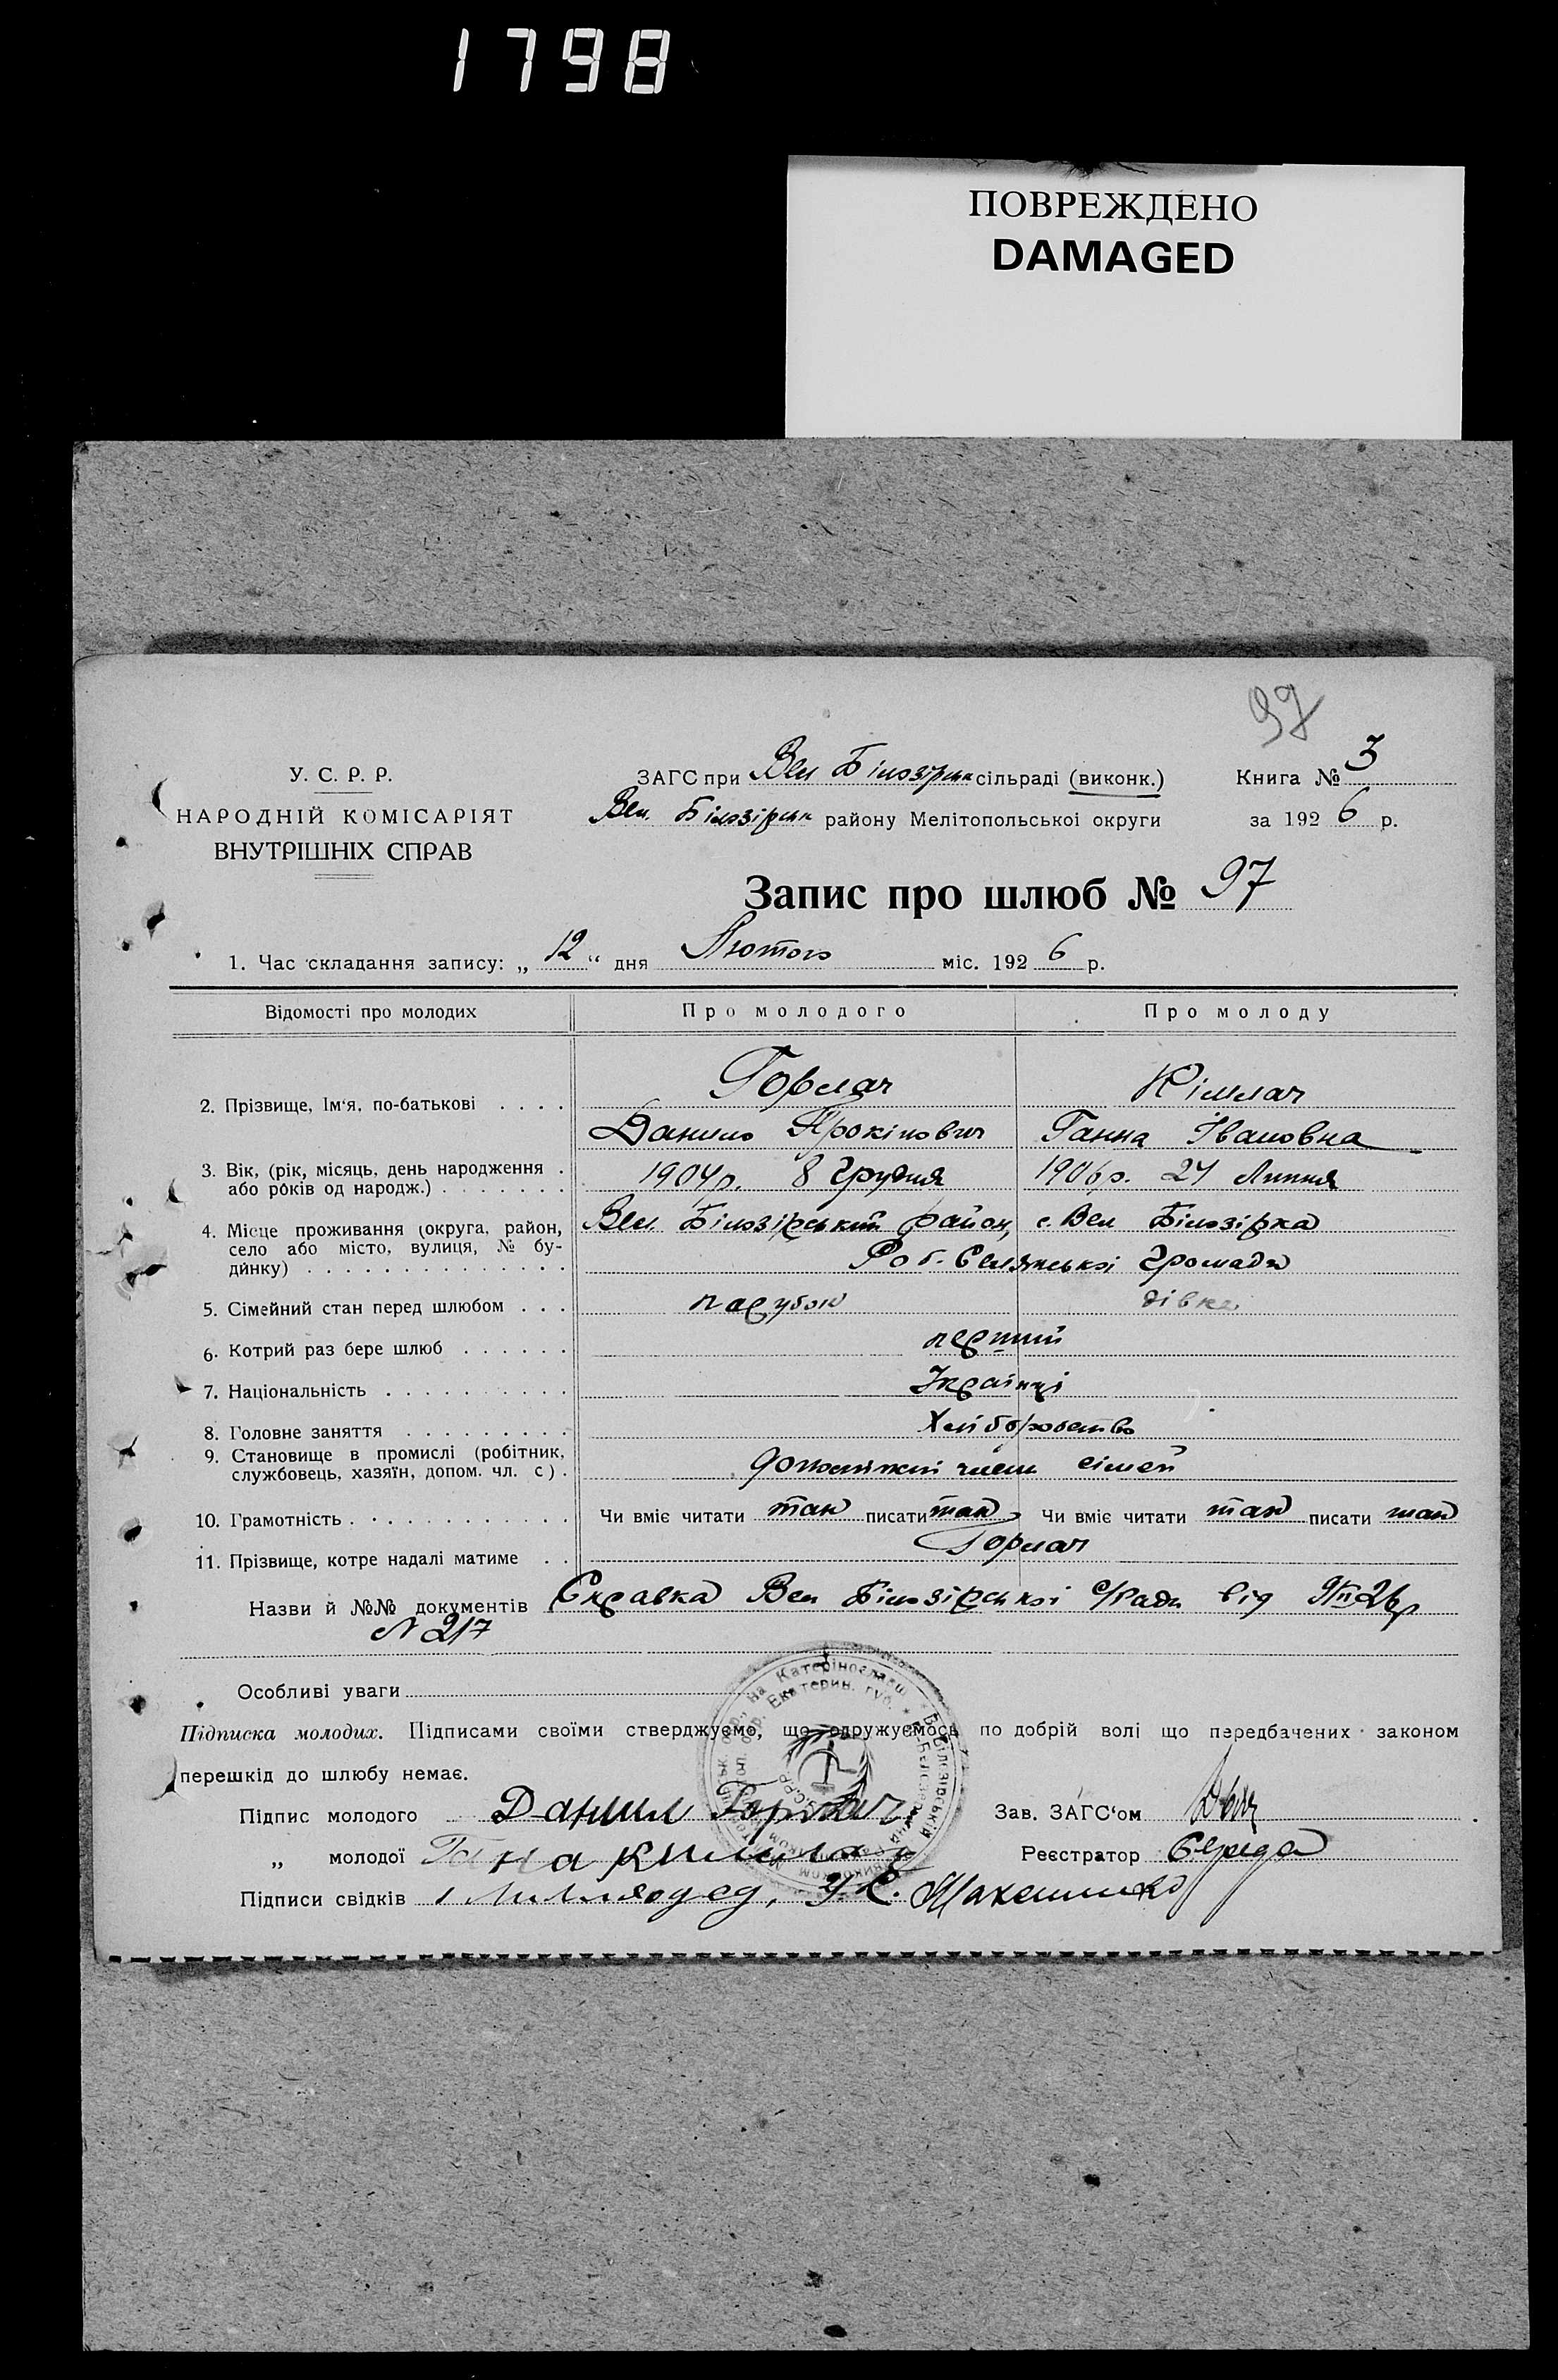 1798
ПОВРЕЖДЕНО
DAMAGED
97
У. С. Р. Р.
НАРОДНІЙ КОМІСАРІЯТ
ВНУТРІШНІХ СПРАВ
ЗАГС при Вел Білозірськ сільраді (виконк.)
Вел. Білозірськ району Мелітопольської округи
Книга № 3
за 1926 р.
Запис про шлюб № 97
1. Час складання запису: „12“ дня Лютого міс. 1926 р.
Відомості про молодих Про молодого Про молоду
2. Прізвище, Ім‘я, по-батькові . . . . Горлач Кімлач
Данило Прокіпович Ганна Івановна
3. Вік, (рік, місяць, день народження . або років од народж.) . . . . . . . 1904р. 8 Грудня 1906р. 24 Липня
4. Місце проживання (округа, район, Вел. Білозірський район, с. Вел Білозірка
село або місто, вулиця, № бу-
динку) . . . . . . . . . . . . . . Роб. Селянської Громади
5. Сімейний стан перед шлюбом . . . парубок дівка
6. Котрий раз бере шлюб . . . . . . перший
7. Національність . . . . . . . . . . Українці
8. Головне заняття . . . . . . . . . Хліборобство
9. Становище в промислі (робітник,
службовець, хазяїн, допом. чл. с) . член сімей
10. Грамотність . . . . . . . . . . . . Чи вміє читати так писати так Чи вміє читати так писати так
11. Прізвище, котре надалі матиме . . Горлач
Назви й №№ документів Справка Вел Білозірської с/Ради від 9/II 26р
N 217
Особливі уваги
Підписка молодих. Підписами своїми стверджуємо, що одружуємось по добрій волі що передбачених законом
перешкід до шлюбу немає.
Підпис молодого Данил Горлач Зав. ЗАГС‘ом
„ молодої Гана Реєстратор Середа
Підписи свідків